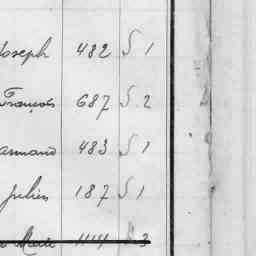 Joseph 482 S 1
François 687 S 2
483 S 1
Julien 187 S 1
Marie 1114 S 3